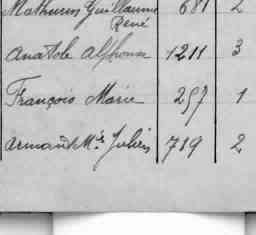 Mathurin Guillaume 681 2
René
Anatole Alphonse 1211 3
François Marie 257 1
Armand Mie Julien 719 2